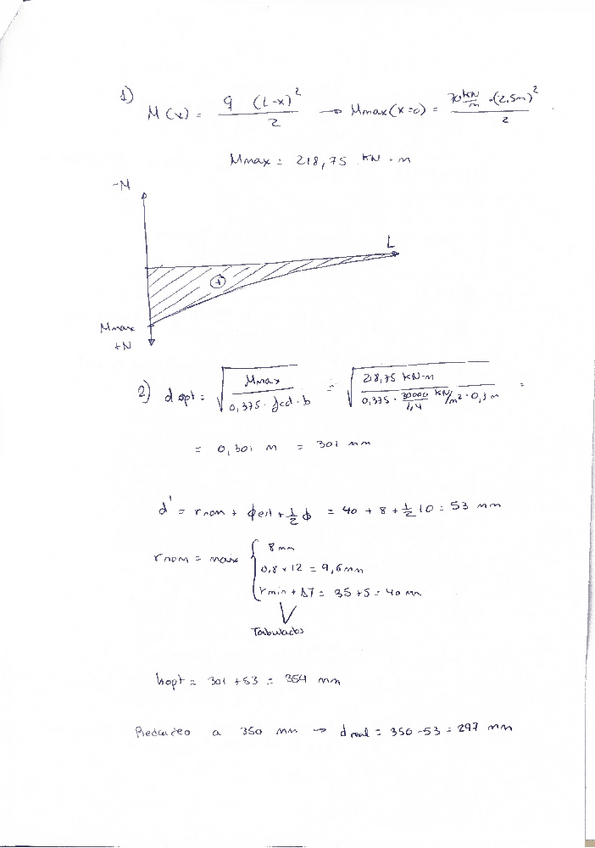 1) M(x) = q (L-x)² / 2 → Mmax(x=0) = 70 kN/m · (2,5m)² / 2
Mmax = 218,75 kN · m
-M
L
+
Mmax
+M
2) d opt = √( Mmax / 0,375 · fcd · b ) = √( 218,75 kN·m / 0,375 · 30000/1,4 kN/m² · 0,3 m ) =
= 0,301 m = 301 mm
d' = rnom + ϕest + 1/2 ϕ = 40 + 8 + 1/2 10 = 53 mm
rnom = max { 8 mm
0,8 x 12 = 9,6 mm
rmin + Δr = 35 + 5 = 40 mm
Tabulados
hopt = 301 + 53 = 354 mm
Redondeo a 350 mm → d real = 350 - 53 = 297 mm